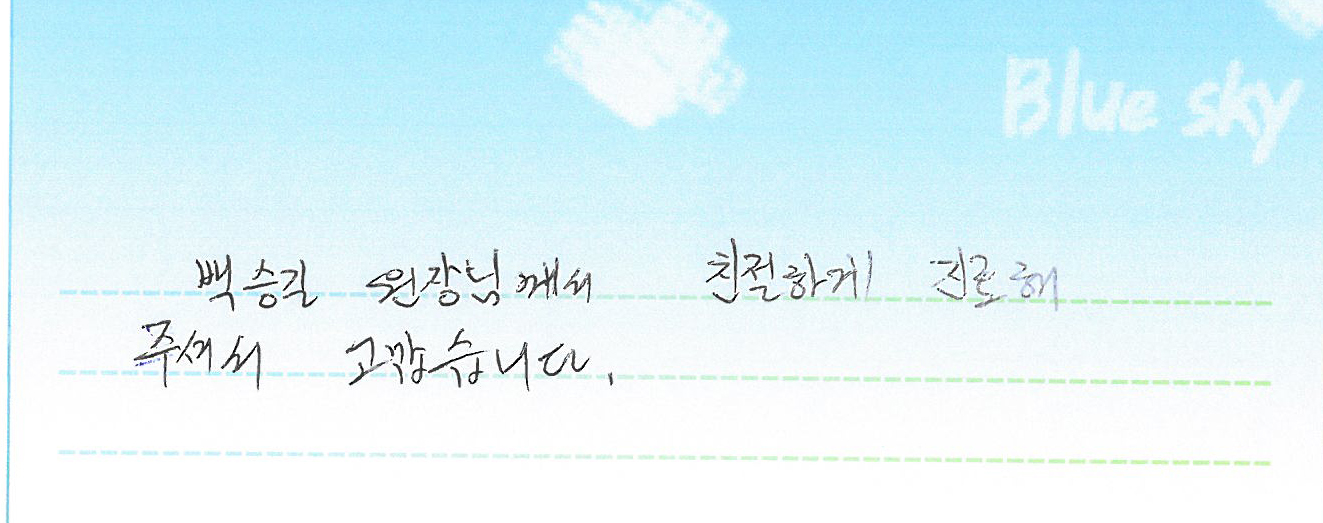 Blue sky
백승길 원장님께서 친절하게 진료해
주셔서 고맙습니다.